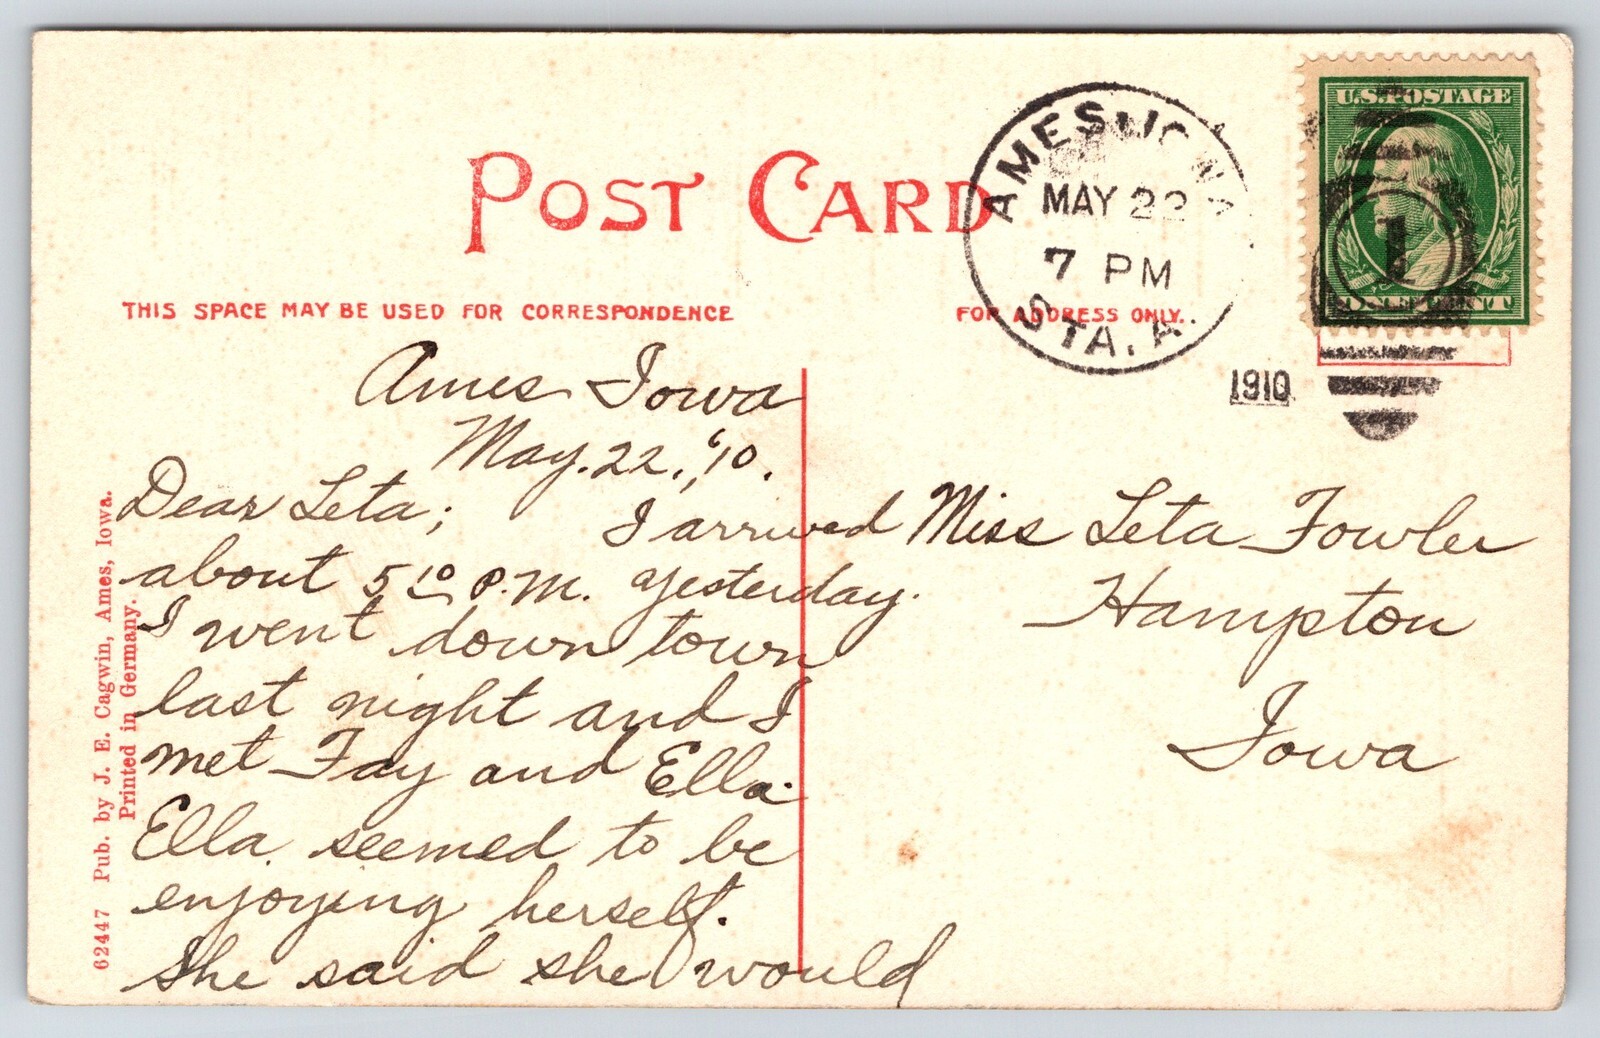 POST CARD
THIS SPACE MAY BE USED FOR CORRESPONDENCE
FOR ADDRESS ONLY.
AMES, IOWA
MAY 22
7 PM
STA. A.
1910
U.S. POSTAGE
1
ONE CENT
Ames Iowa
May. 22, '10.
Dear Leta; I arrived
about 5 10 P.M. yesterday.
I went down town
last night and I
met Fay and Ella.
Ella seemed to be
enjoying herself.
She said she would
Miss Leta Fowler
Hampton
Iowa
62447 Pub. by J. E. Cagwin, Ames, Iowa.
Printed in Germany.